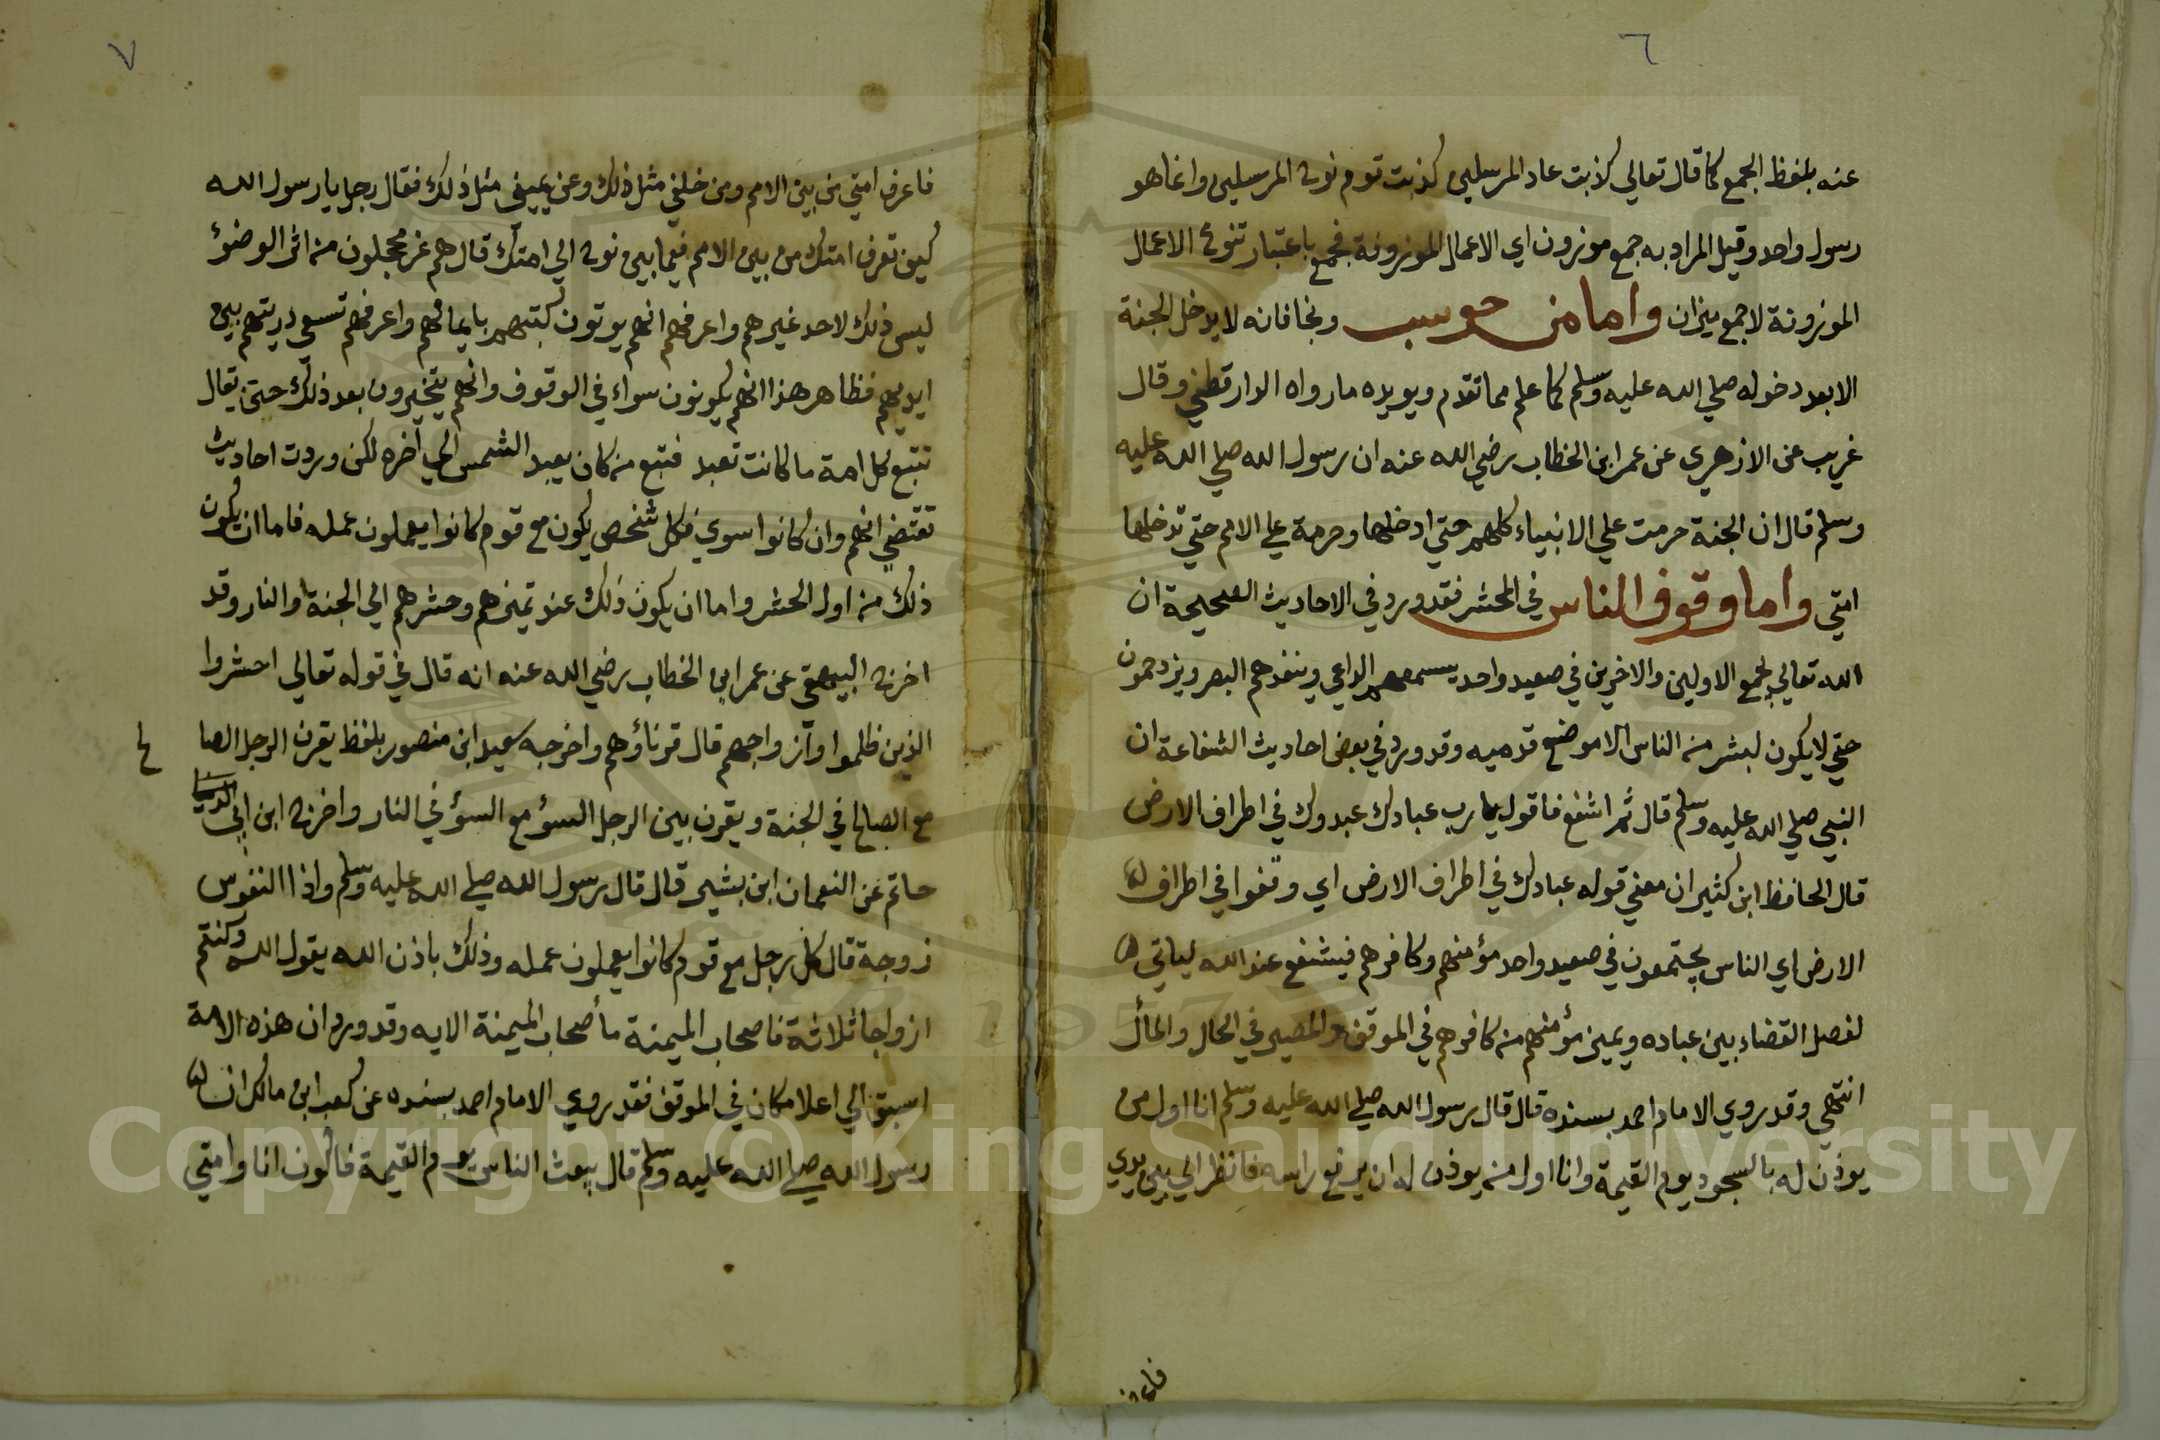 ٦
عنه بلفظ الجمع كما قال تعالي كذبت عاد المرسلين كذبت قوم نوح المرسلين وانما هو
رسول واحد وقيل المراد به جمع موزون اي الاعمال الموزونة فجمع باعتبار تنوع الاعمال
الموزونة لا جمع ميزان واما من حوسب ونجا فانه لا يدخل الجنة
الا بعد دخوله صلي الله عليه وسلم كما علم مما تقدم ويويده ما رواه الدارقطني وقال
غريب عن الازهري عن عمر ابن الخطاب رضي الله عنه ان رسول الله صلي الله عليه
وسلم قال ان الجنة حرمت علي الانبياء كلهم حتي ادخلها وحرمة علي الامم حتي تدخلها
امتي واما وقوف الناس في المحشر فقد ورد في الاحاديث الصحيحة ان
الله تعالي يجمع الاولين والاخرين في صعيد واحد يسمعهم الداعي وينفدهم البصر ويزدحمون
حتي لا يكون لبشر من الناس الا موضع قدميه وقد ورد في بعض احاديث الشفاعة ان
النبي صلي الله عليه وسلم قال ثم اشفع فاقول يا رب عبادك عبدوك في اطراف الارض
قال الحافظ ابن كثير ان معني قوله عبادك في اطراف الارض اي وقفوا في اطراف
الارض اي الناس يجتمعون في صعيد واحد مؤمنهم وكافرهم فيشفع عند الله لياتي
لفصل القضاء بين عباده ويميز مؤمنهم من كافرهم في الموقف والمصير في الحال والمآل
انتهي وقد روي الامام احمد بسنده قال قال رسول الله صلي الله عليه وسلم انا اول من
يوذن له بالسجود يوم القيمة وانا اول من يوذن له ان يرفع راسه فانظر الي بين يدي
فاعرف
٧
فاعرف امتي من بين الامم ومن خلفي مثل ذلك وعن يميني مثل ذلك فقال رجل يا رسول الله
كيف تعرف امتك من بين الامم فيما بين نوح الي امتك قال هم غر محجلون من اثر الوضوء
ليس ذلك لاحد غيرهم واعرفهم انهم يوتون كتبهم بايمانهم واعرفهم تسعي ذريتهم بين
ايديهم فظاهر هذا انهم يكونون سواء في الوقوف وانهم يتخيرون بعد ذلك حتي يقال
تتبع كل امة ما كانت تعبد فتبع من كان يعبد الشمس الي اخره لكن وردت احاديث
تقتضي انهم وان كانوا سوي فكل شخص يكون مع قوم كانوا يعملون عمله فاما ان يكون
ذلك من اول الحشر واما ان يكون ذلك عند تميزهم وحشرهم الي الجنة والنار وقد
اخرج البيهقي عن عمر ابن الخطاب رضي الله عنه انه قال في قوله تعالي احشروا
الذين ظلموا وازواجهم قال قرناؤهم واخرجه سعيد ابن منصور بلفظ يقرن الرجل الصا
لح
مع الصالح في الجنة ويقرن بين الرجل السوء مع السوء في النار واخرج ابن ابي الدنيا
حاتم عن النعمان ابن بشير قال قال رسول الله صلي الله عليه وسلم واذا النفوس
زوجة قال كل رجل مع قوم كانوا يعملون عمله وذلك باذن الله يقول الله وكنتم
ازواجا ثلاثة فاصحاب الميمنة ما أصحاب الميمنة الايه وقد ورد ان هذه الامة
اسبق الي اعلا مكان في الموقف فقد روي الامام احمد بسنده عن كعب ابن مالك ان
رسول الله صلي الله عليه وسلم قال يبعث الناس يوم القيمة فاكون انا وامتي
Copyright © King Saud University
1957